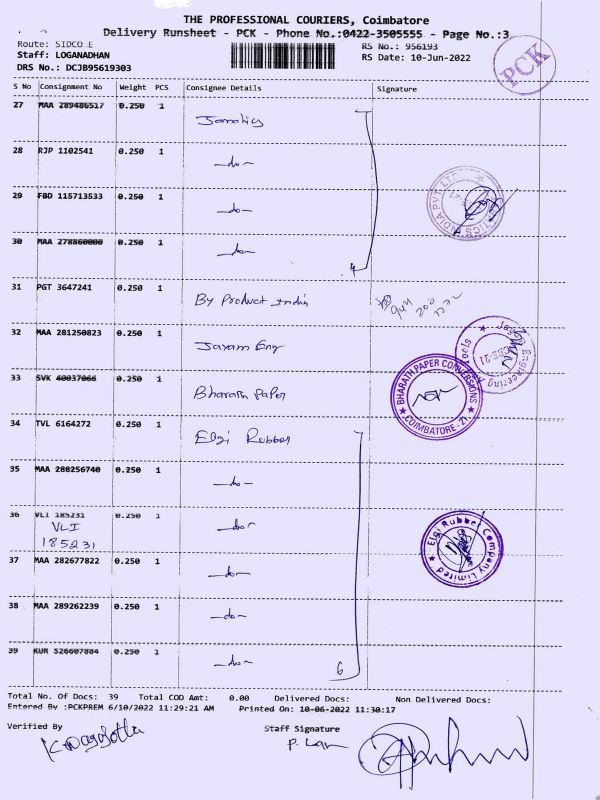 THE PROFESSIONAL COURIERS, Coimbatore
Delivery Runsheet - PCK - Phone No.:0422-3505555 - Page No.:3
Route: SIDCO E
RS No.: 956193
Staff: LOGANADHAN
RS Date: 10-Jun-2022
DRS No.: DCJB95619303
PCK
S No Consignment No Weight PCS Consignee Details Signature
27 MAA 289486517 0.250 1
28 RJP 1102541 0.250 1 -do-
29 FBD 115713533 0.250 1 -do-
30 MAA 278860000 0.250 1 -do-
4
31 PGT 3647241 0.250 1 By Product India
32 MAA 281250823 0.250 1 Jayam Eng
33 SVK 40037066 0.250 1 Bharath Paper
BHARATH PAPER CONVERSIONS
COIMBATORE - 21
34 TVL 6164272 0.250 1 Elgi Rubber
35 MAA 288256740 0.250 1 -do-
36 VLI 185231 0.250 1 -do-
VLI
185231
Elgi Rubber Company Limited
37 MAA 282677822 0.250 1 -do-
38 MAA 289262239 0.250 1 -do-
39 KUR 526607884 0.250 1 -do-
6
Total No. Of Docs: 39 Total COD Amt: 0.00 Delivered Docs: Non Delivered Docs:
Entered By :PCKPREM 6/10/2022 11:29:21 AM Printed On: 10-06-2022 11:30:17
Verified By Staff Signature